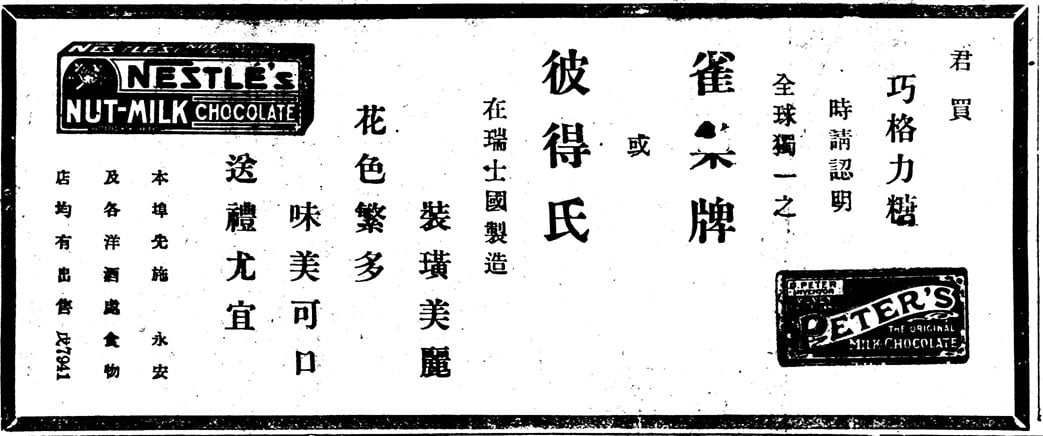 君買
巧格力糖
時請認明
全球獨一之
雀巢牌
或
彼得氏
在瑞士國製造
裝璜美麗
花色繁多
味美可口
送禮尤宜
本埠先施 永安
及各洋酒處食物
店均有出售
戌7941
NESTLÉ'S NUT
NESTLÉ'S
NUT-MILK CHOCOLATE
D.PETER
INVENTOR
PETER'S
THE ORIGINAL
MILK CHOCOLATE